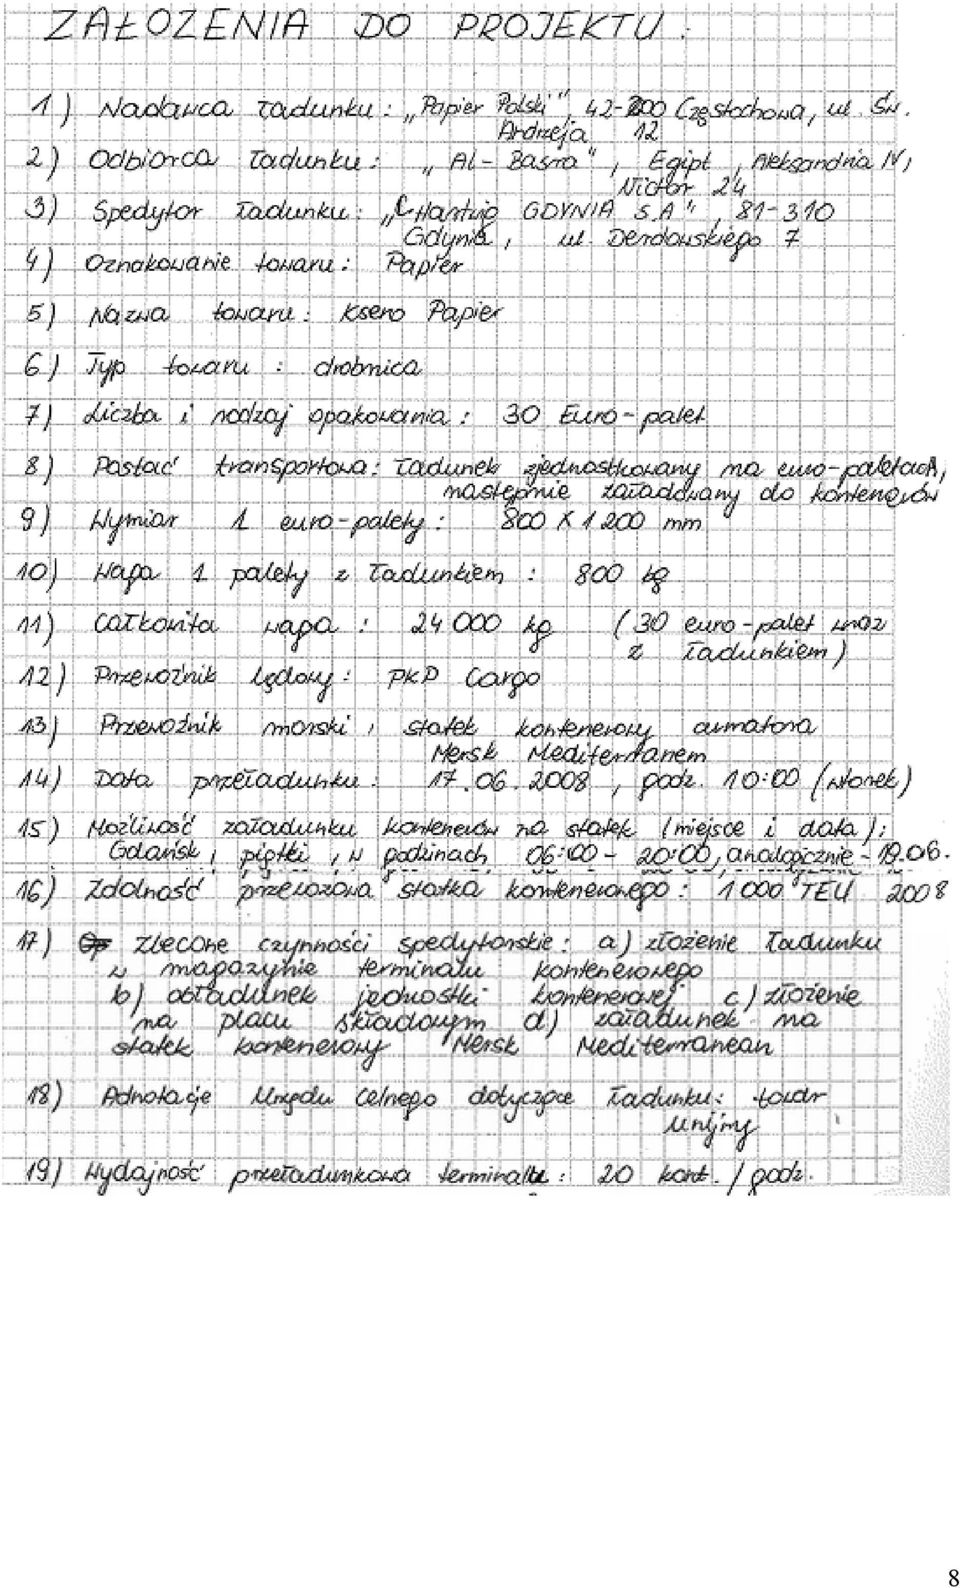 ZAŁOŻENIA DO PROJEKTU:
1) Nadawca ładunku: „Papier Polski", 42-200 Częstochowa, ul. Św.
Andrzeja 12
2) Odbiorca ładunku: „Al-Basra", Egipt, Aleksandria IV,
Victor 24
3) Spedytor ładunku: „C.Hartwig GDYNIA S.A", 81-310
Gdynia, ul. Derdowskiego 7
4) Oznakowanie towaru: Papier
5) Nazwa towaru: Ksero Papier
6) Typ towaru: drobnica
7) Liczba i rodzaj opakowania: 30 Euro-palet
8) Postać transportowa: ładunek zjednostkowany na euro-paletach,
następnie załadowany do kontenerów
9) Wymiar 1 euro-palety: 800 X 1200 mm
10) Waga 1 palety z ładunkiem: 800 kg
11) Całkowita waga: 24 000 kg (30 euro-palet wraz
z ładunkiem)
12) Przewoźnik lądowy: PKP Cargo
13) Przewoźnik morski, statek kontenerowy armatora
Mersk Mediterranem
14) Data przeładunku: 17.06.2008, godz. 10:00 (wtorek)
15) Możliwość załadunku kontenerów na statek (miejsce i data):
Gdańsk, piątki, w godzinach 06:00 - 20:00, analogicznie - 19.06.
2008
16) Zdolność przewozowa statku kontenerowego: 1 000 TEU
17) Zlecone czynności spedytorskie: a) złożenie ładunku
w magazynie terminalu kontenerowego
b) obładunek jednostki kontenerowej c) złożenie
na placu składowym d) załadunek na
statek kontenerowy Mersk Mediterranean
18) Adnotacje Urzędu Celnego dotyczące ładunku: towar
unijny
19) Wydajność przeładunkowa terminalu: 20 kont. / godz.
8